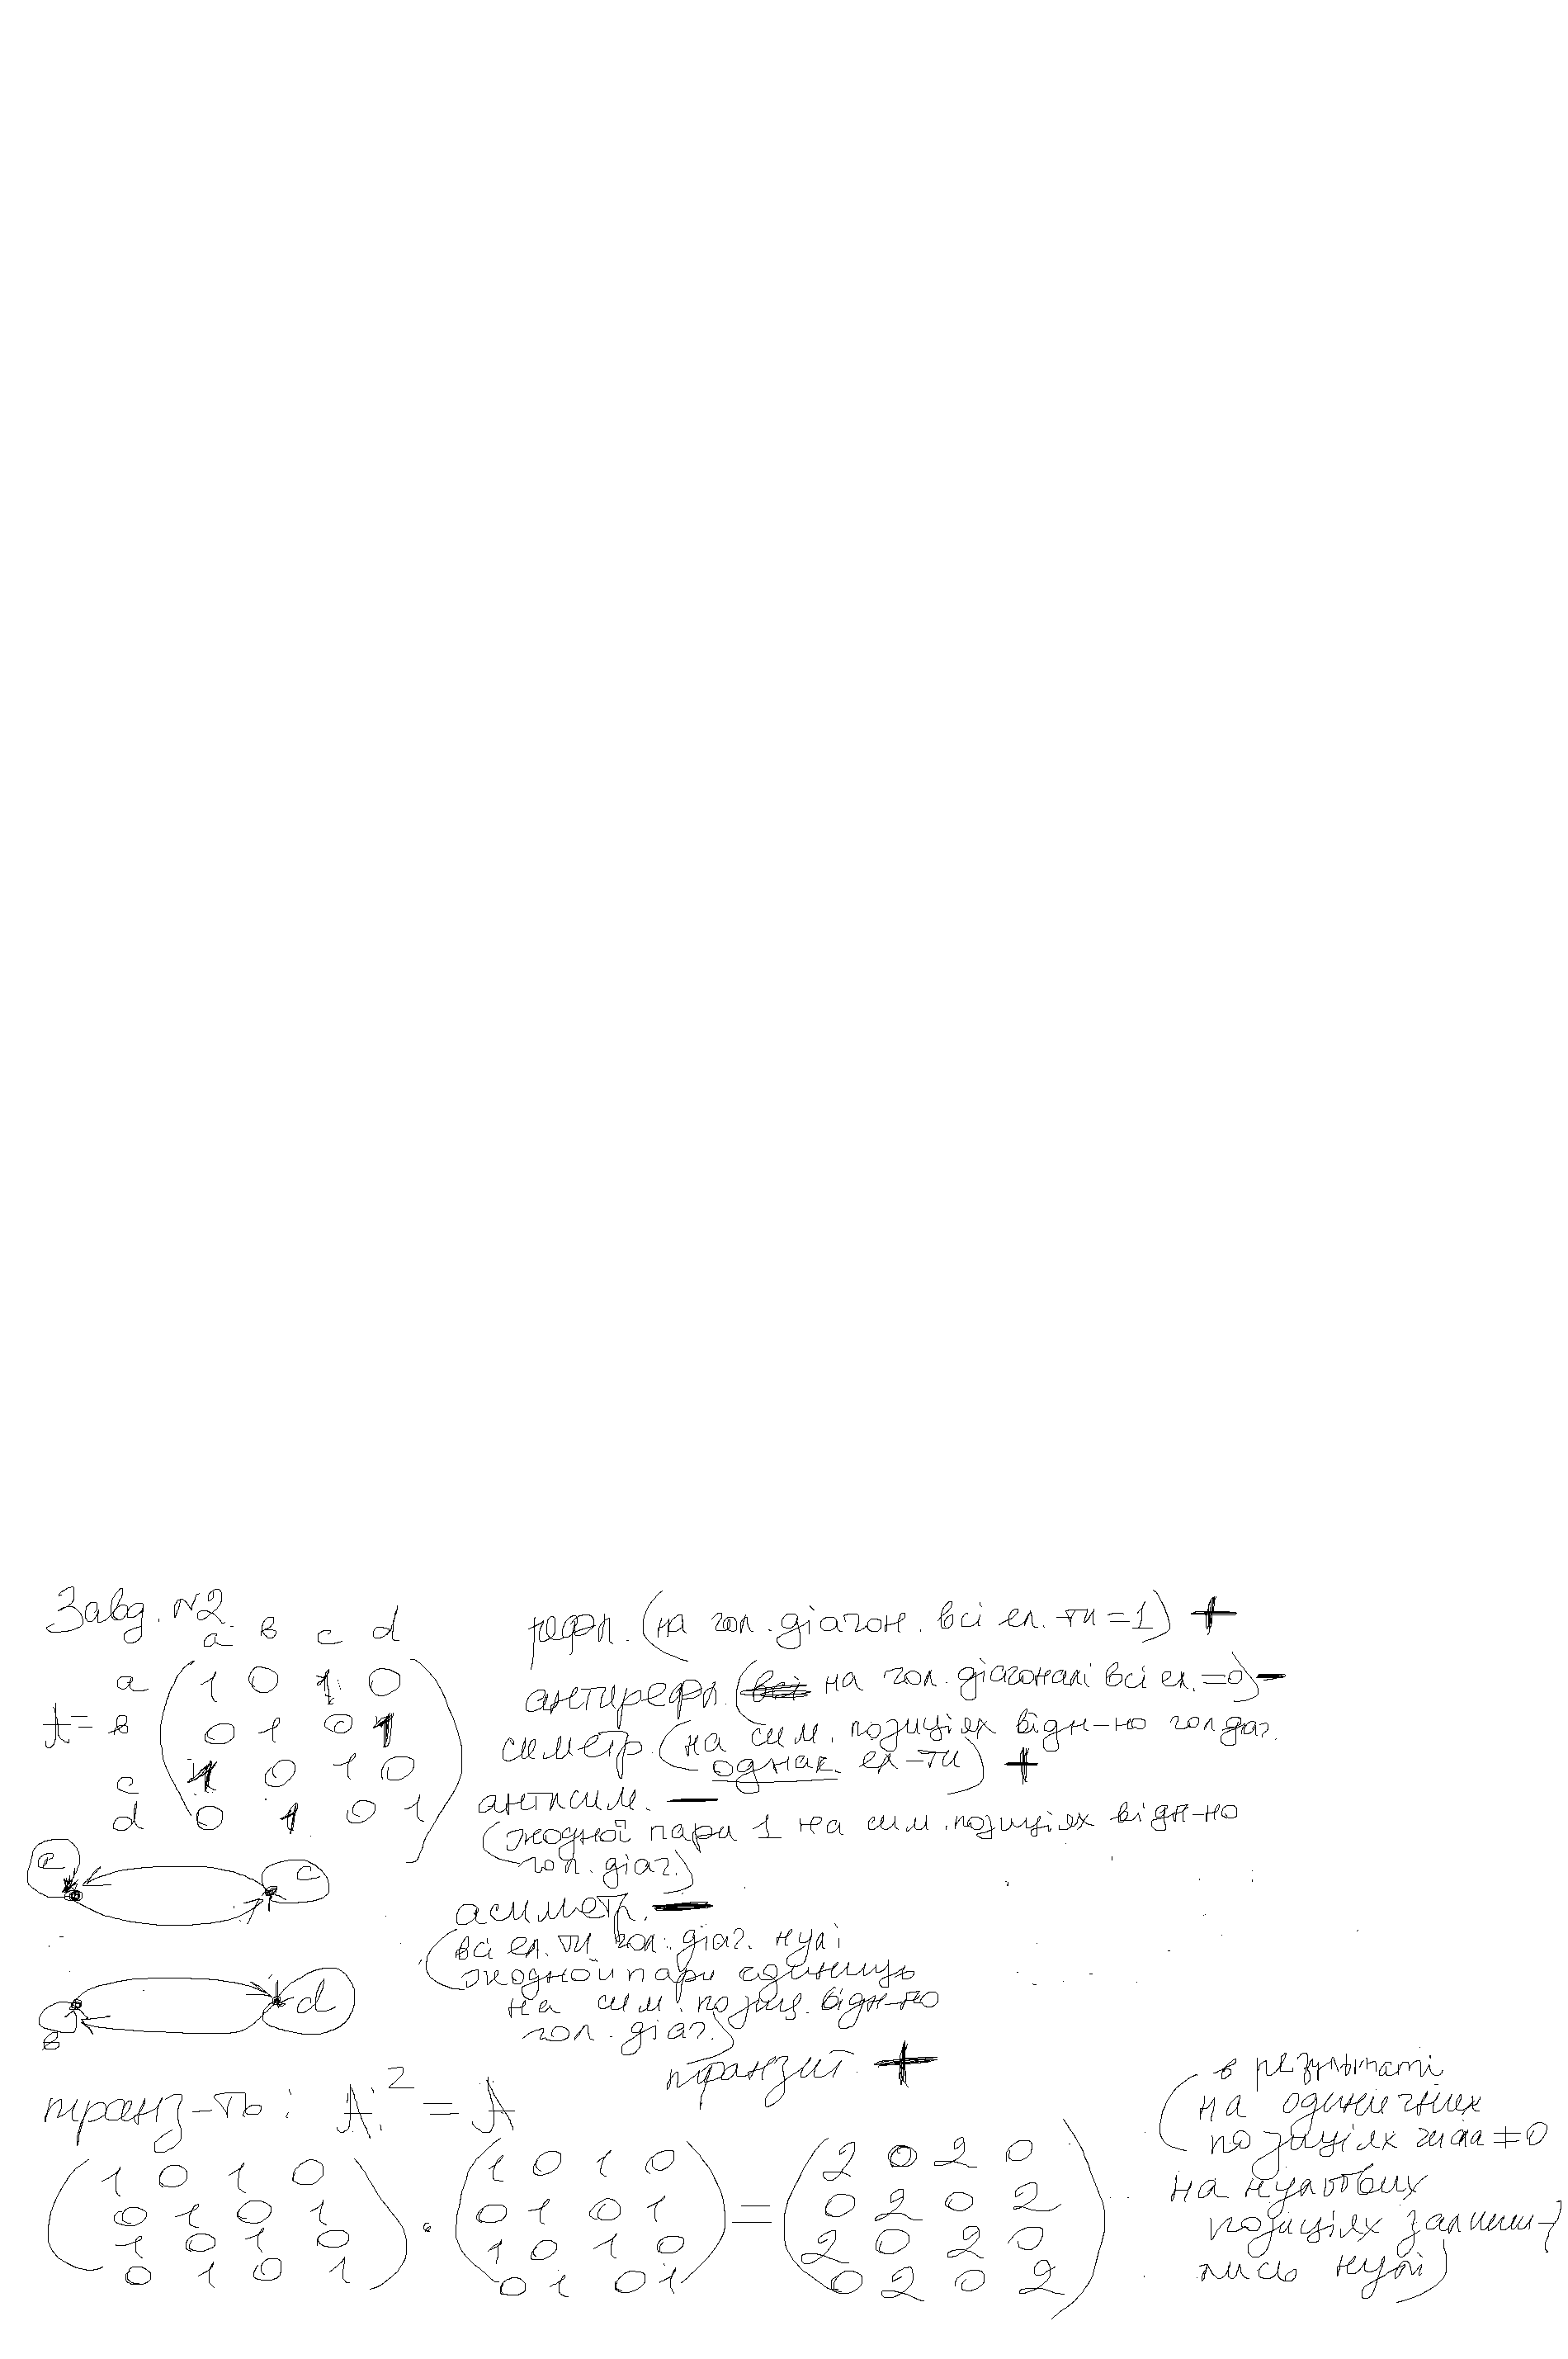 Завд. №2.
a в c d
a 1 0 1 0
A= в 0 1 0 1
c 1 0 1 0
d 0 1 0 1
рефл. (на гол. діагон. всі ел.-ти =1) +
антирефл. (всі на гол. діагоналі всі ел. =0) −
симетр. (на сим. позиціях відн-но гол даг.
однак. ел-ти) +
антисим. −
(жодної пари 1 на сим. позиціях відн-но
гол. діаг.)
асиметр. −
(всі ел. ти гол. діаг. нулі
жодной пари единиць
на сим. позиц. відн-но
гол. діаг.)
транзит. +
a c
в d
транз-ть: A² = A
(1 0 1 0) · (1 0 1 0) = (2 0 2 0)
(0 1 0 1) (0 1 0 1) (0 2 0 2)
(1 0 1 0) (1 0 1 0) (2 0 2 0)
(0 1 0 1) (0 1 0 1) (0 2 0 2)
в результаті
(на одиничних
позиціях числа ≠0
на нульових
позиціях залиши-
лись нулі)